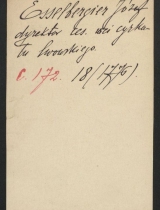 Esselbergier Józef
dyrektor ces.
cyrku-
łu lwowskiego.
c. 172. 18(1776).